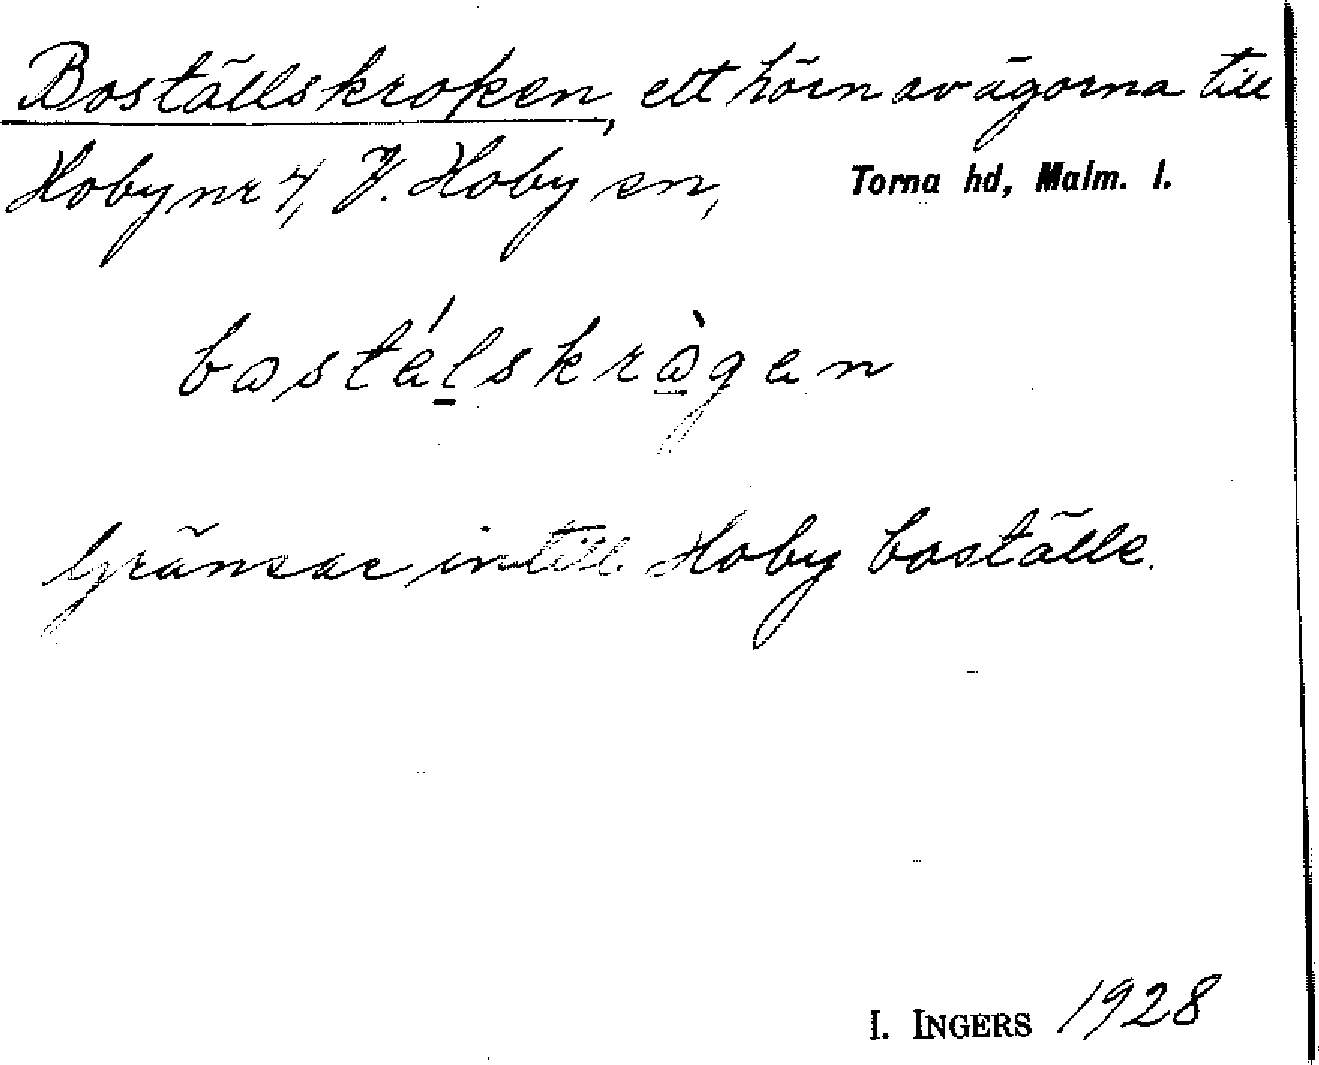 Boställskroken, ett hörn av ägorna till
Hoby nr 4, V. Hoby sn, Torna hd, Malm. l.
bostälskrogen
Gränsar intill Hoby boställe.
I. INGERS 1928